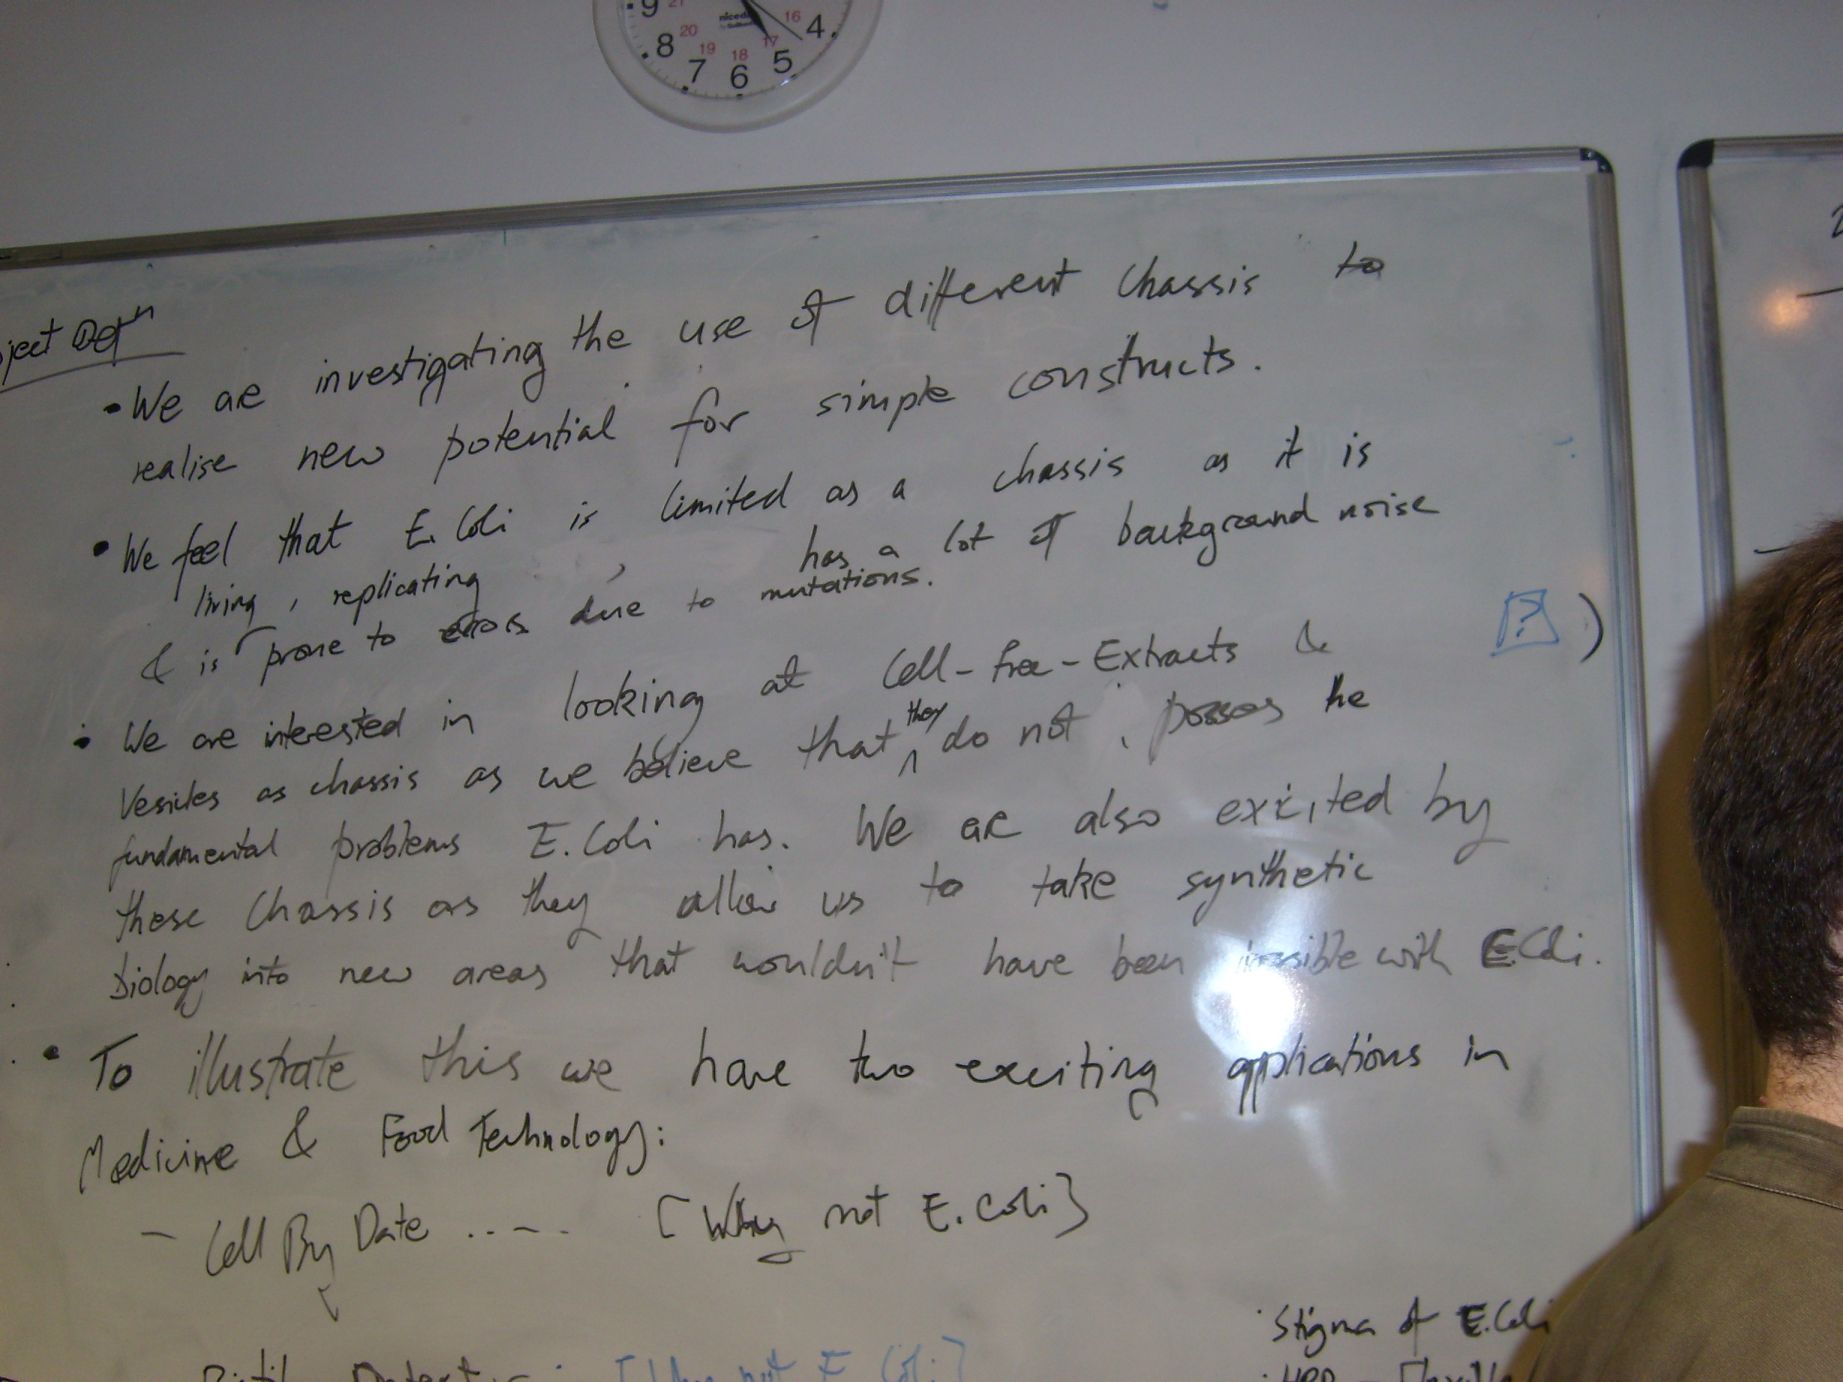 9 21 16 4
8 20 17
19 18 5
7 6
ject Defⁿ
• We are investigating the use of different chassis to
realise new potential for simple constructs.
• We feel that E. Coli is limited as a chassis as it is
living, replicating, has a lot of background noise
& is prone to errors due to mutations.
[?] )
• We are interested in looking at Cell-free-Extracts &
Vesicles as chassis as we believe that they do not possess the
fundamental problems E. Coli has. We are also excited by
these Chassis as they allow us to take synthetic
biology into new areas that wouldn't have been possible with E.Coli.
• To illustrate this we have two exciting applications in
Medicine & Food Technology:
- Cell By Date ..... [Why not E. Coli]
Stigma of E.Coli
[Why not E Coli]